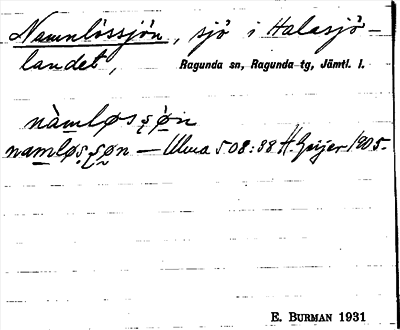 Namnlössjön, sjö i Halasjö-
landet, Ragunda sn, Ragunda tg, Jämtl. l.
nàmløs ʂø̀n
namløs ʂøn — Ulma 508:38 H. Geijer 1905.
E. BURMAN 1931